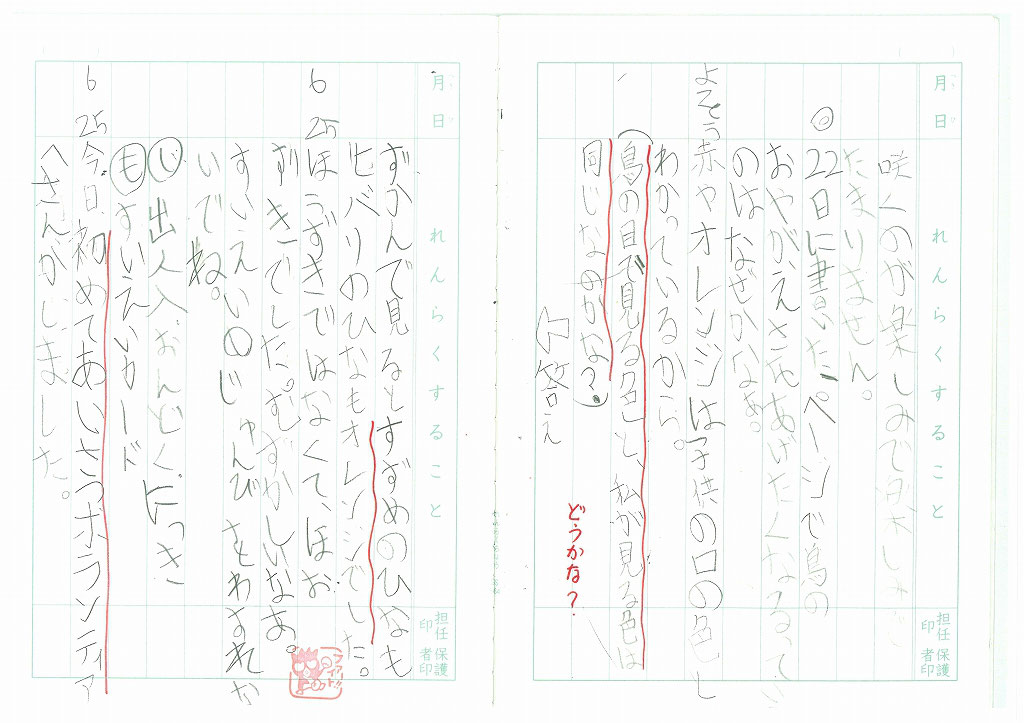 月 日
れんらくすること
担任印
保護者印
咲くのが楽しみで楽しみで
たまりません。
◎22日に書いたページで鳥の
おやがえさをあげたくなるってい
のはなぜかなあ。
よそう赤やオレンジは子供の口の色し
わかっているから。
(鳥の目で見る色と、私が見る色は
同じなのかな?)
⇦答え
どうかな?
月 日
れんらくすること
担任印
保護者印
ずかんで見るとすずめのひなも
ヒバリのひなもオレンジでした。
6 25 ほうずきではなくて、ほお
ずきでした。むずかしいなあ。
すいえいのじゅんびをわすれな
いでね。
じ 出人入おんどくにっき
も すいえいカード
6 25 今日、初めてあいさつボランティア
へさんかしました。
ファイト!!